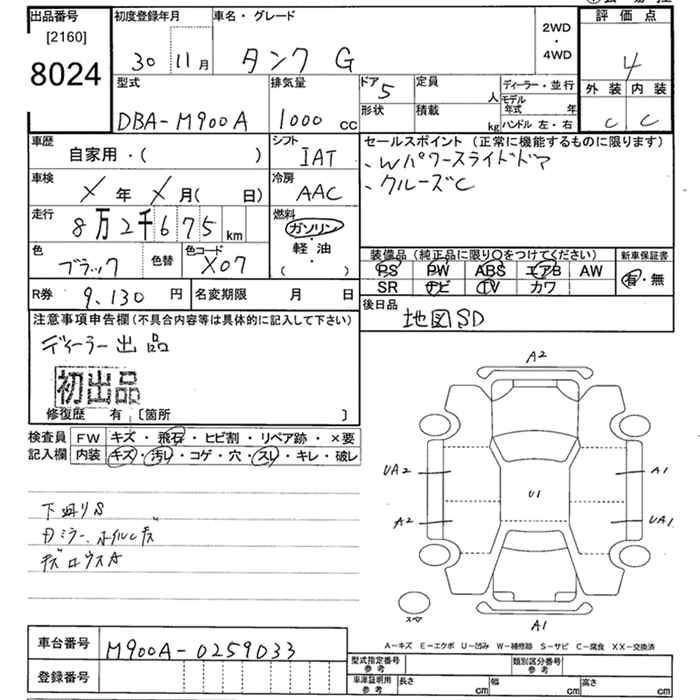 出品番号 [2160] 8024
初度登録年月 30 11月
車名・グレード タンク G
2WD ・ 4WD
評価点 4
外装 内装
C C
型式 DBA-M900A
排気量 1000 cc
ドア 5 形状
定員 人
積載 kg
ディーラー・並行
モデル年式 年
ハンドル 左・右
車歴 自家用・( )
シフト IAT
セールスポイント (正常に機能するものに限ります)
・Wパワースライドドア
・クルーズC
車検 X 年 X 月( 日)
冷房 AAC
走行 8万2千675 km
燃料 ガソリン・軽油 ( )
色 ブラック 色替 色コード X07
装備品 (純正品に限り○をつけてください)
PS PW ABS エアB AW
SR ナビ TV カワ
新車保証書 有・無
R券 9,130 円
名変期限 月 日
後日品 地図SD
注意事項申告欄 (不具合内容等は具体的に記入して下さい)
ディーラー出品
初出品
修復歴 有 [箇所 ]
検査員記入欄
FW キズ・飛石・ヒビ割・リペア跡・×要
内装 キズ・汚レ・コゲ・穴・スレ・キレ・破レ
下廻りS
A2
UA2 A1
U1
A2 UA1
A1
スペア
A-キズ E-エクボ U-凹み W-補修跡 S-サビ C-腐食 XX-交換済
車台番号 M900A-0259033
登録番号
型式指定番号 参考
類別区分番号 参考
車庫証明用 参考 長さ cm 幅 cm 高さ cm